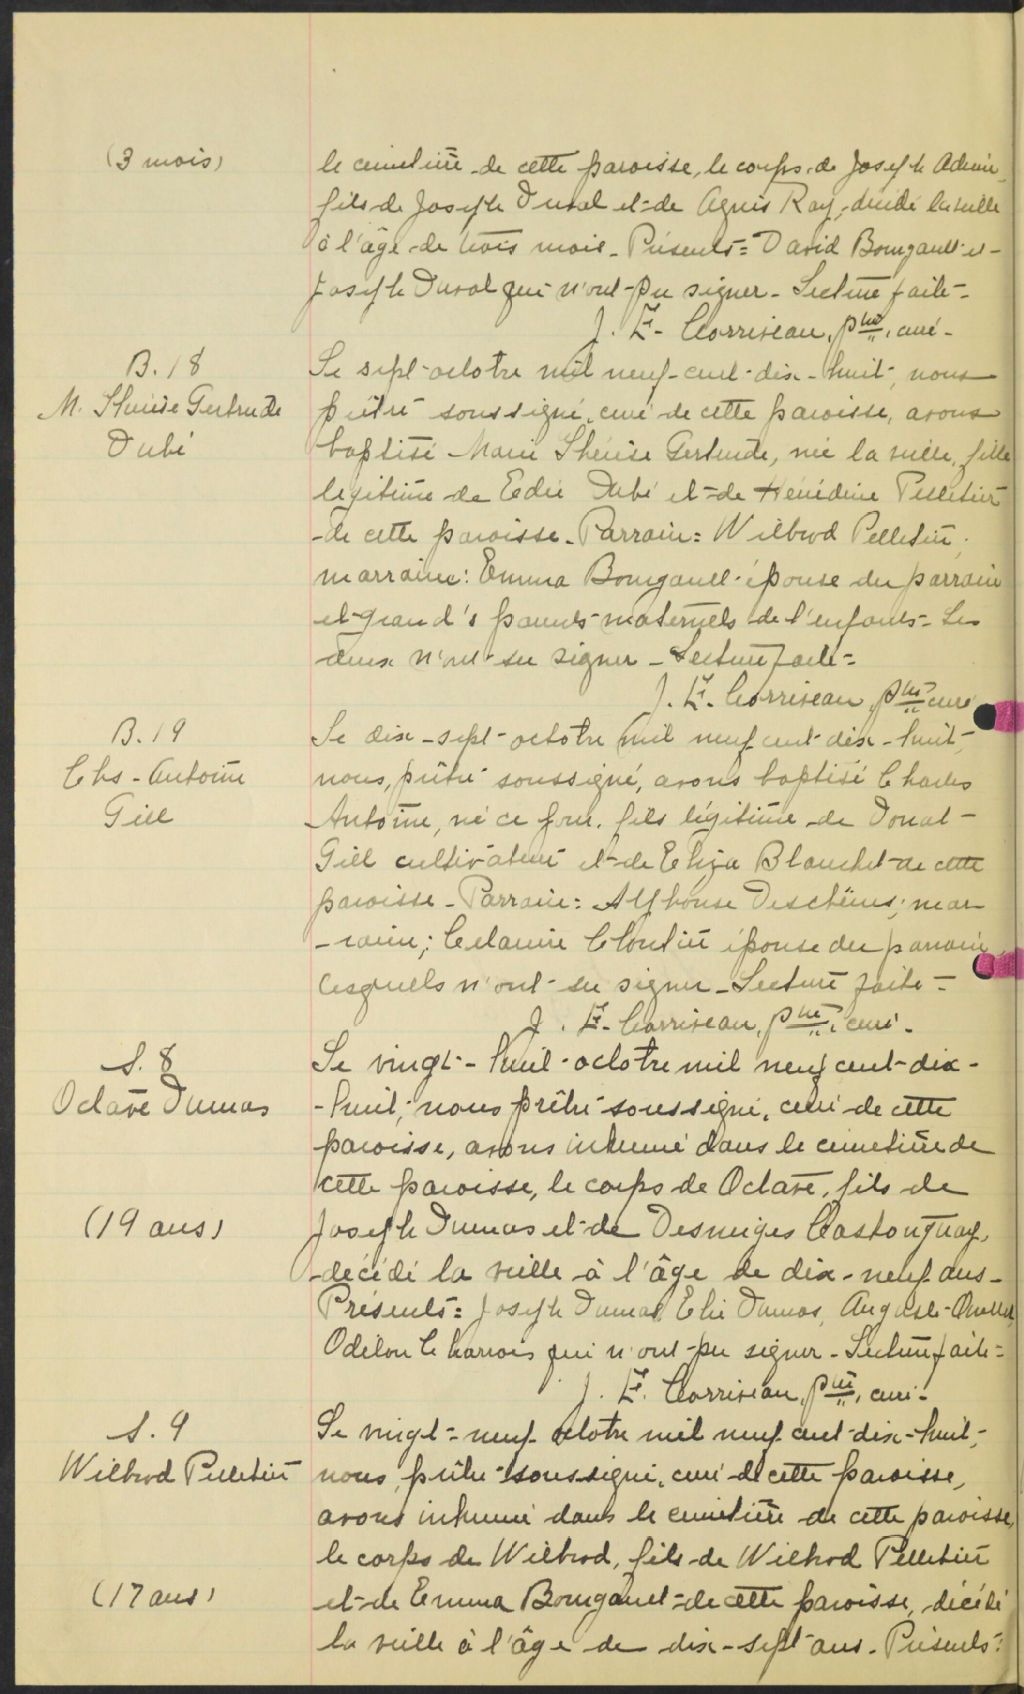 (3 mois)
le cimetière de cette paroisse, le corps de Joseph
fils de Joseph Duval et de Agnès Roy, décédé la veille
à l'âge de trois mois. Présents = David Bourgault et
Joseph Duval qui n'ont pu signer - Lecture faite -
J. E. Corriveau, ptre, curé -
B. 18
M. Thérèse Gertrude
Dubé
Le sept octobre mil neuf-cent-dix-huit, nous
prêtre soussigné, curé de cette paroisse, avons
baptisé Marie Thérèse Gertrude, née la veille, fille
légitime de Eddie Dubé et de Hénédine Pelletier
de cette paroisse. Parrain = Wilbrod Pelletier;
marraine: Emma Bourgault épouse du parrain
et grand's parents maternels de l'enfants - Les
deux n'ont su signer - Lecture faite =
J. E. Corriveau, ptre curé
B. 19
Chs - Antoine
Gill
Le dix-sept octobre mil neuf cent dix-huit,
nous, prêtre soussigné, avons baptisé Charles
Antoine, né ce jour, fils légitime de Donat -
Gill cultivateur et de Eliza Blanchet de cette
paroisse - Parrain = Alphonse Deschênes; mar
-raine; Cloutier épouse du parrain,
lesquels n'ont su signer - Lecture faite -
J. E. Corriveau, ptre, curé -
S. 8
Octave Dumas
(19 ans)
Le vingt-huit octobre mil neuf cent-dix-
-huit, nous prêtre soussigné, curé de cette
paroisse, avons inhumé dans le cimetière de
cette paroisse, le corps de Octave, fils de
Joseph Dumas et de Desneiges Castonguay,
décédé la veille à l'âge de dix-neuf ans -
Présents = Joseph Dumas, Elie Dumas, Auguste Ouellet,
Odilon Charrois qui n'ont pu signer - Lecture faite =
J. E. Corriveau, ptre, curé -
S. 9
Wilbrod Pelletier
(17 ans)
Le vingt-neuf octobre mil neuf cent dix-huit,
nous, prêtre soussigné, curé de cette paroisse,
avons inhumé dans le cimetière de cette paroisse,
le corps de Wilbrod, fils de Wilbrod Pelletier
et de Emma Bourgault de cette paroisse, décédé
la veille à l'âge de dix-sept ans - Présents =